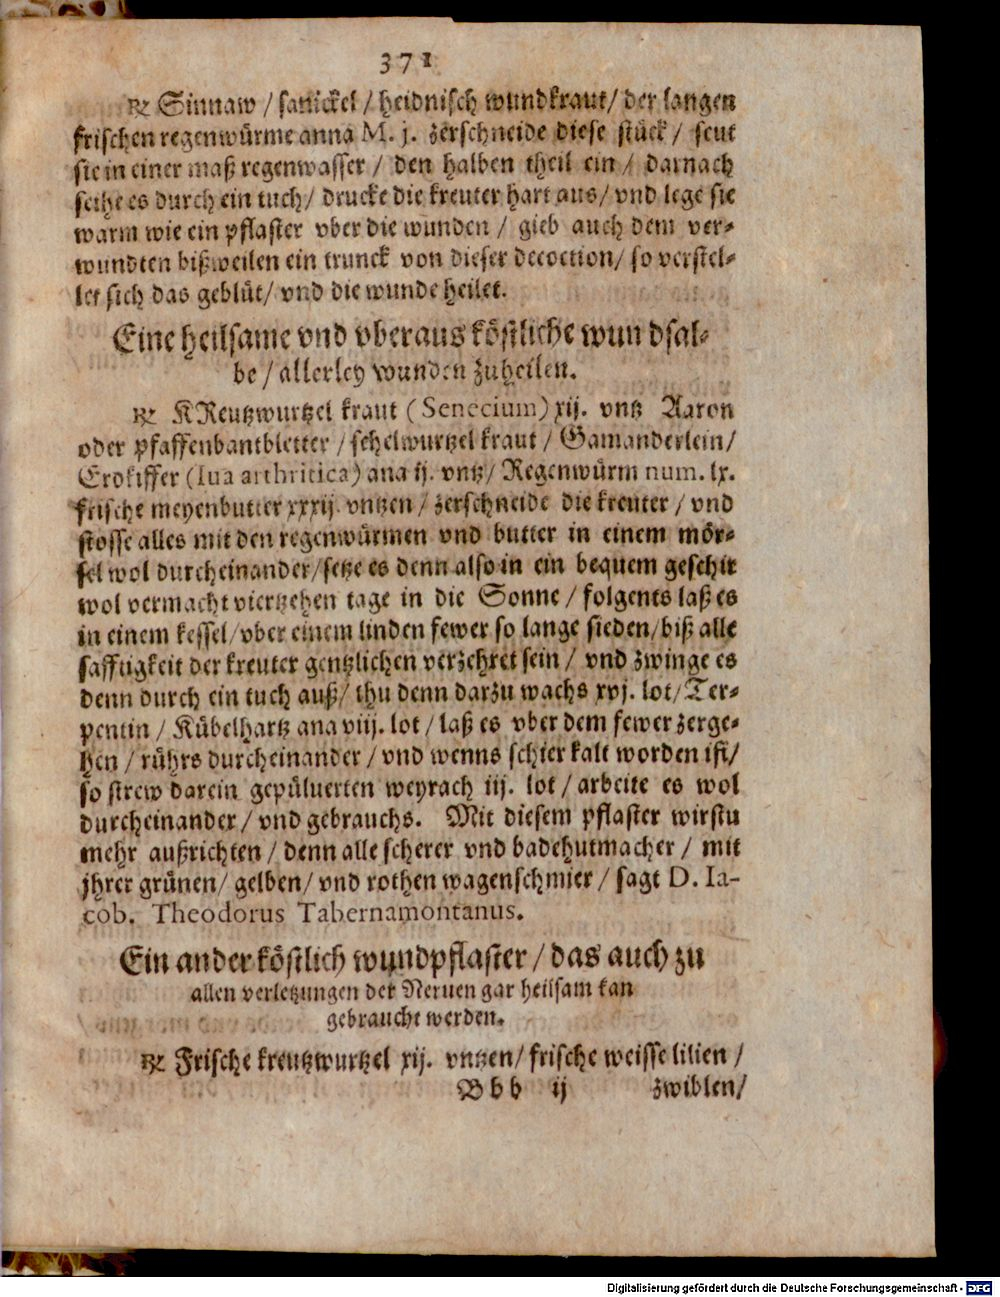 371
℞ Sinnaw / sanickel / heidnisch wundkraut / der langen
frischen regenwürme anna M. j. zerschneide diese stück / seut
sie in einer maß regenwasser / den halben theil ein / darnach
seihe es durch ein tuch / drucke die kreuter hart aus / vnd lege sie
warm wie ein pflaster vber die wunden / gieb auch dem ver-
wundten bißweilen ein trunck von dieser decoction / so verstel-
let sich das geblüt / vnd die wunde heilet.
Eine heilsame vnd vberaus köstliche wundsal-
be / allerley wunden zuheilen.
℞ KReutzwurtzel kraut (Senecium) xij. vntz Aaron
oder pfaffenbantbletter / schelwurtzel kraut / Gamanderlein /
Erdkiffer (Iua arthritica) ana ij. vntz / Regenwürm num. lx.
frische meyenbutter xxxij. vntzen / zerschneide die kreuter / vnd
stosse alles mit den regenwürmen vnd butter in einem mör-
sel wol durcheinander / setze es denn also in ein bequem geschir
wol vermacht viertzehen tage in die Sonne / folgents laß es
in einem kessel / vber einem linden fewer so lange sieden / biß alle
safftigkeit der kreuter gentzlichen verzehret sein / vnd zwinge es
denn durch ein tuch auß / thu denn darzu wachs xvj. lot / Ter-
pentin / Kübelhartz ana viij. lot / laß es vber dem fewer zerge-
hen / rührs durcheinander / vnd wenns schier kalt worden ist /
so strew darein gepüluerten weyrach iij. lot / arbeite es wol
durcheinander / vnd gebrauchs. Mit diesem pflaster wirstu
mehr außrichten / denn alle scherer vnd badehutmacher / mit
jhrer grünen / gelben / vnd rothen wagenschmier / sagt D. Ia-
cob. Theodorus Tabernamontanus.
Ein ander köstlich wundpflaster / das auch zu
allen verletzungen der Neruen gar heilsam kan
gebraucht werden.
℞ Frische kreutzwurtzel xij. vntzen / frische weisse lilien /
Bbb ij zwiblen /
Digitalisierung gefördert durch die Deutsche Forschungsgemeinschaft - DFG